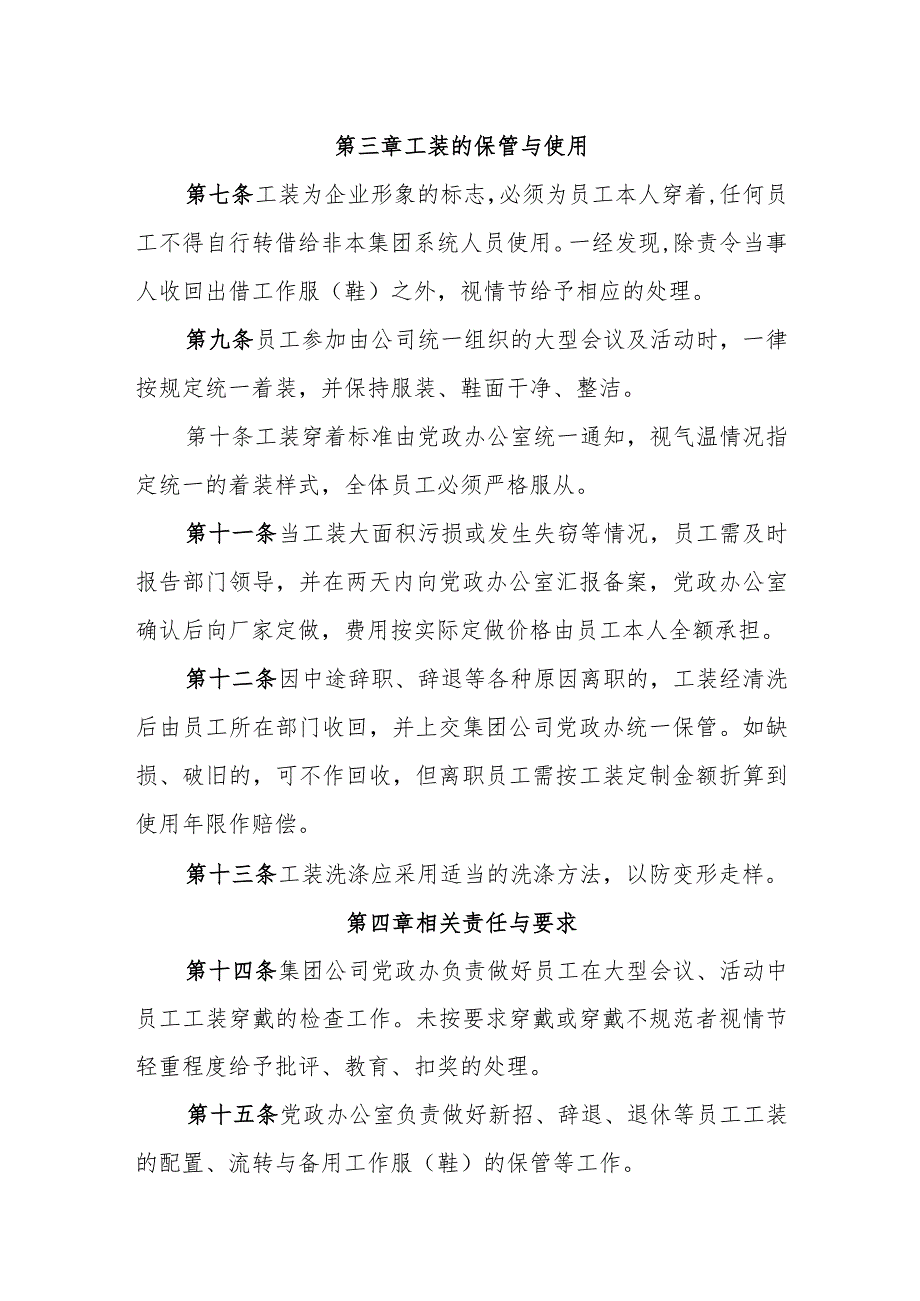 第三章工装的保管与使用
第七条工装为企业形象的标志,必须为员工本人穿着,任何员
工不得自行转借给非本集团系统人员使用。一经发现,除责令当事
人收回出借工作服（鞋）之外，视情节给予相应的处理。
第九条员工参加由公司统一组织的大型会议及活动时，一律
按规定统一着装，并保持服装、鞋面干净、整洁。
第十条工装穿着标准由党政办公室统一通知，视气温情况指
定统一的着装样式，全体员工必须严格服从。
第十一条当工装大面积污损或发生失窃等情况，员工需及时
报告部门领导，并在两天内向党政办公室汇报备案，党政办公室
确认后向厂家定做，费用按实际定做价格由员工本人全额承担。
第十二条因中途辞职、辞退等各种原因离职的，工装经清洗
后由员工所在部门收回，并上交集团公司党政办统一保管。如缺
损、破旧的，可不作回收，但离职员工需按工装定制金额折算到
使用年限作赔偿。
第十三条工装洗涤应采用适当的洗涤方法，以防变形走样。
第四章相关责任与要求
第十四条集团公司党政办负责做好员工在大型会议、活动中
员工工装穿戴的检查工作。未按要求穿戴或穿戴不规范者视情节
轻重程度给予批评、教育、扣奖的处理。
第十五条党政办公室负责做好新招、辞退、退休等员工工装
的配置、流转与备用工作服（鞋）的保管等工作。